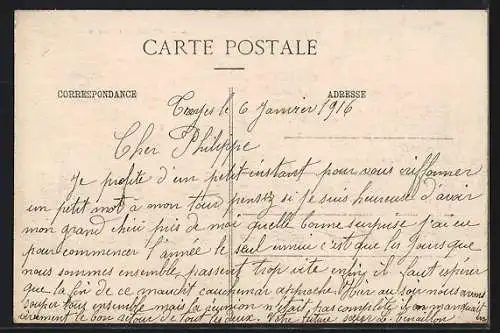 CARTE POSTALE
CORRESPONDANCE
ADRESSE
Troyes le 6 Janvier 1916
Cher Philippe
Je profite d'un petit instant pour vous griffonner
un petit mot à mon tour pensez si je suis heureuse d'avoir
mon grand chéri près de moi quelle bonne surprise j'ai eu
pour commencer l'année le seul ennui c'est que les jours que
nous sommes ensemble passent trop vite enfin il faut espérer
que la fin de ce maudit cauchemar approche Hier au soir nous avons
souper tous ensemble mais la réunion n'était pas complète il en manquait
le bon de tous les deux. Votre future sœur